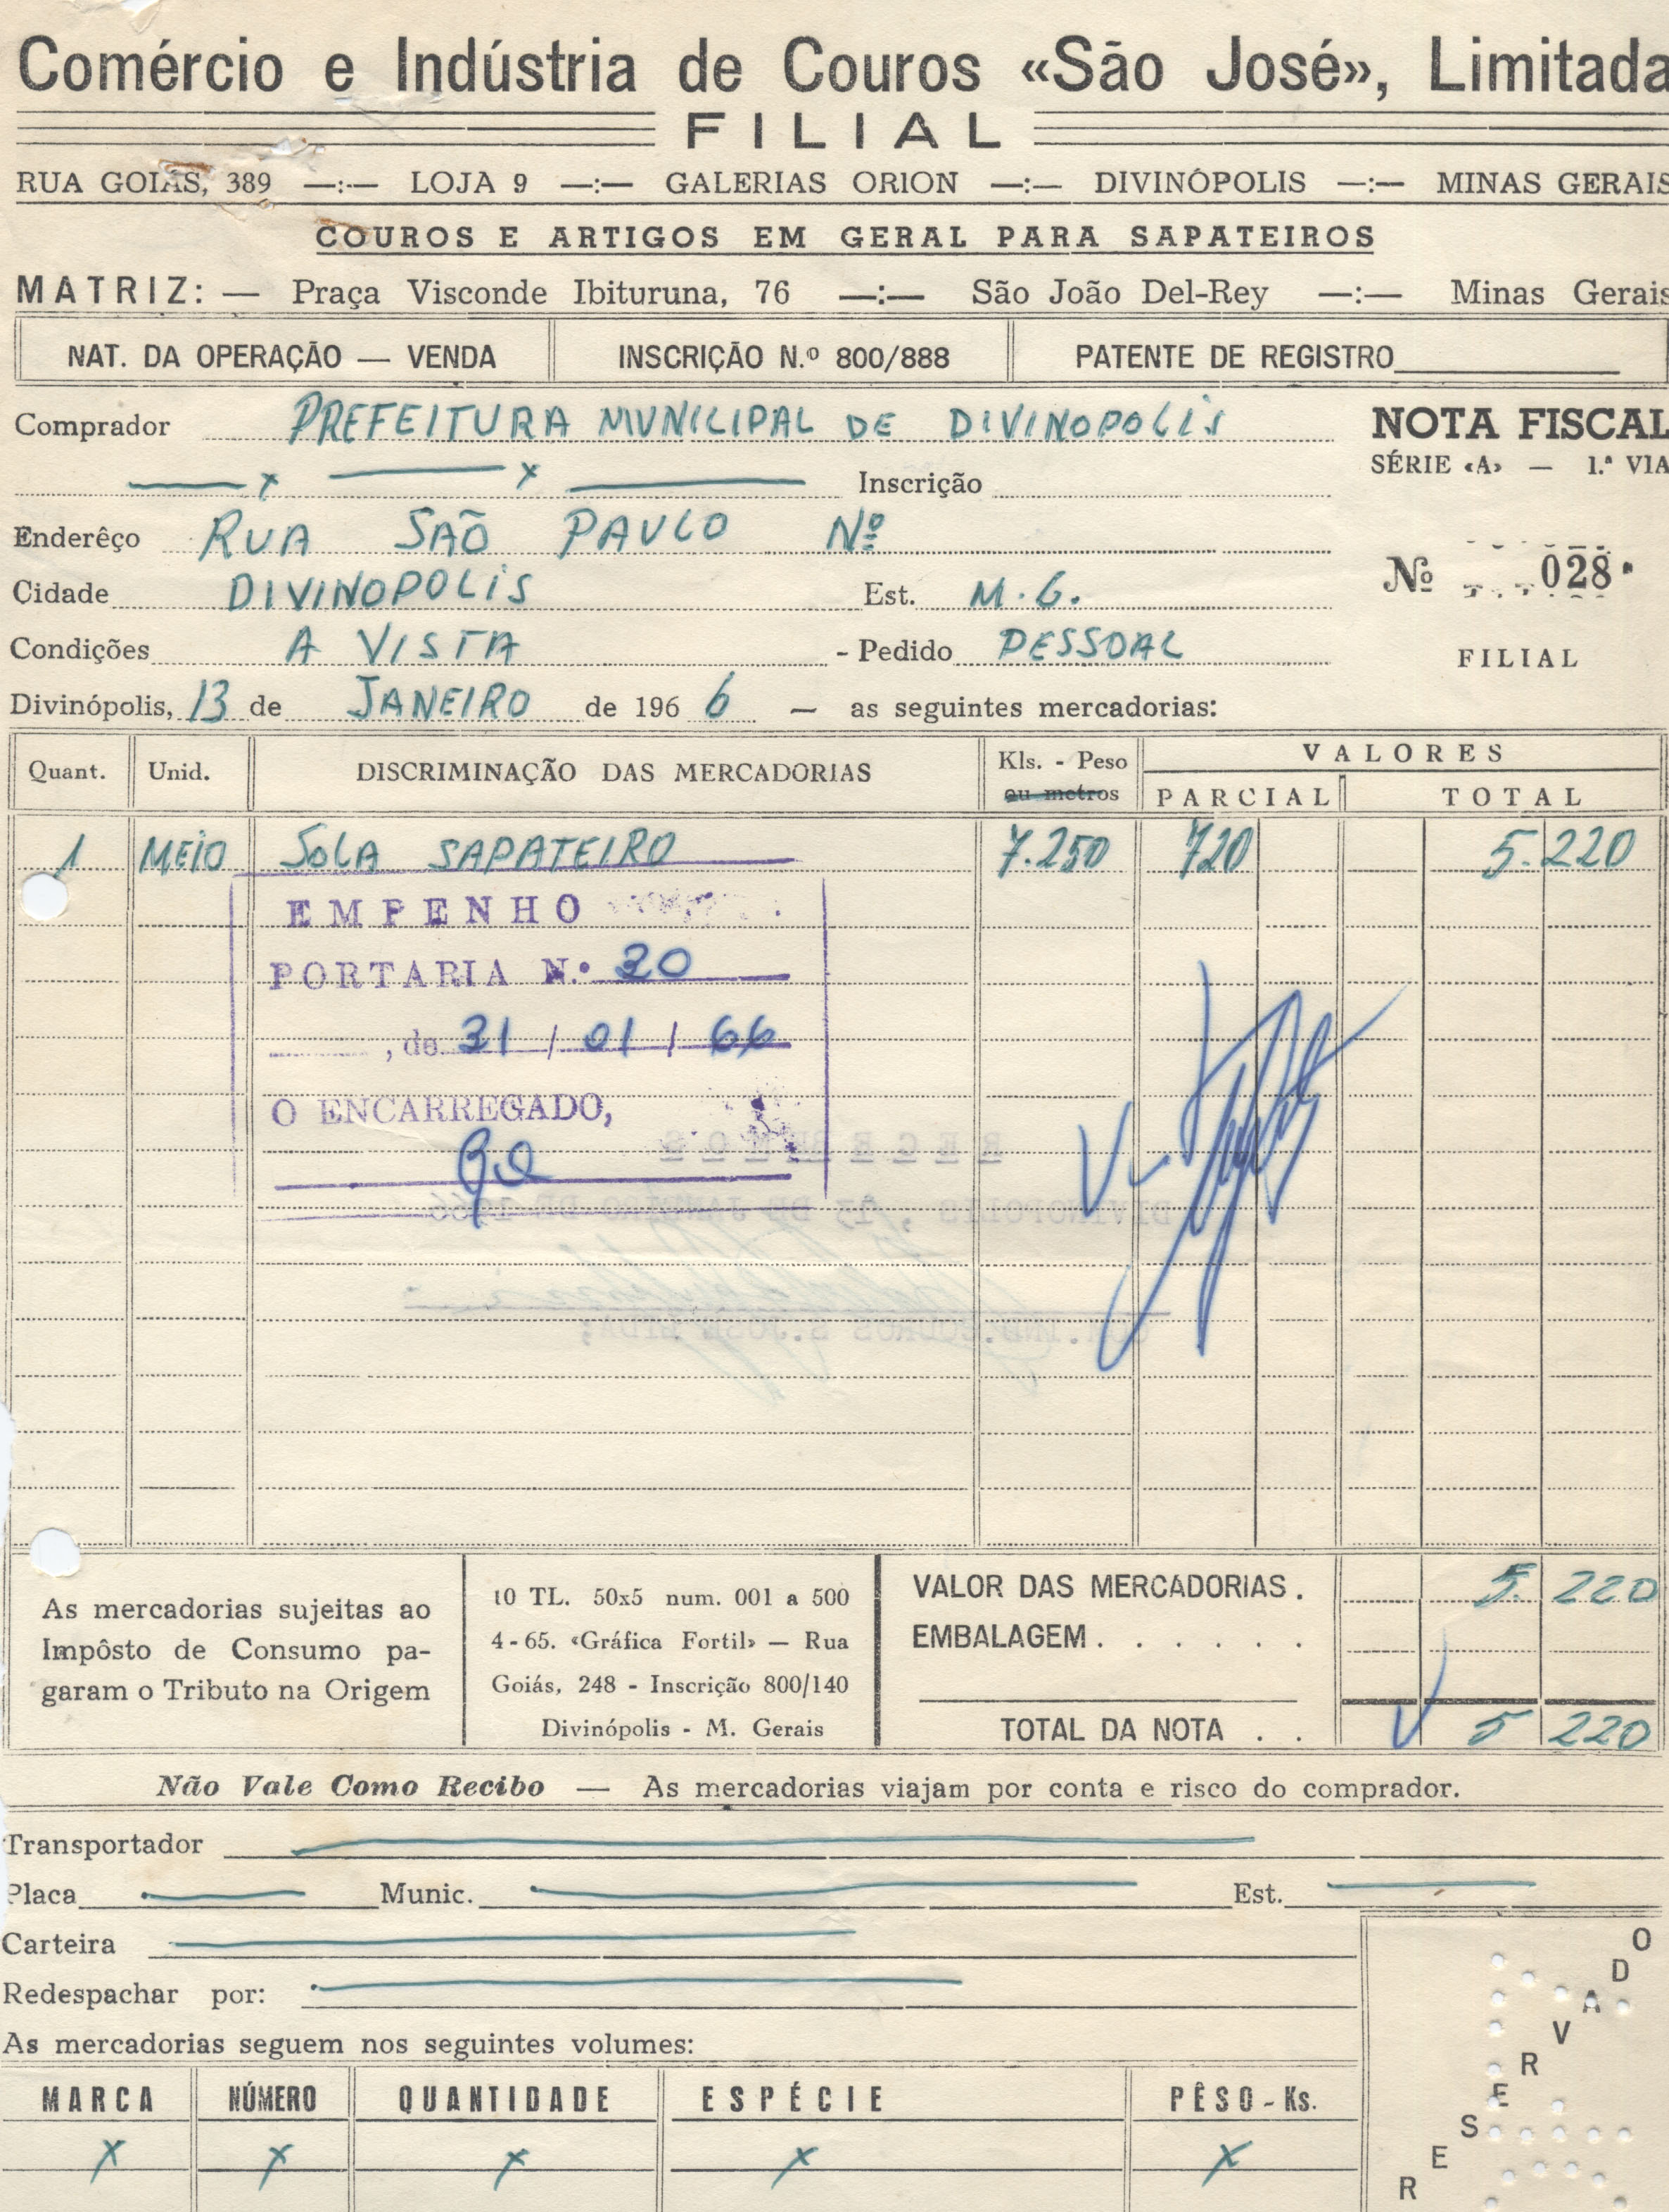 Comércio e Indústria de Couros «São José», Limitada
FILIAL
RUA GOIÁS, 389 —:— LOJA 9 —:— GALERIAS ORION —:— DIVINÓPOLIS —:— MINAS GERAIS
COUROS E ARTIGOS EM GERAL PARA SAPATEIROS
MATRIZ: — Praça Visconde Ibituruna, 76 —:— São João Del-Rey —:— Minas Gerais
NAT. DA OPERAÇÃO — VENDA INSCRIÇÃO N.º 800/888 PATENTE DE REGISTRO
Comprador PREFEITURA MUNICIPAL DE DIVINOPOLIS
NOTA FISCAL
SÉRIE «A» — 1.ª VIA
x x Inscrição
Enderêço RUA SAÕ PAULO Nº
Nº 028
Cidade DIVINOPOLIS Est. M.G.
Condições A VISTA - Pedido PESSOAL
FILIAL
Divinópolis, 13 de JANEIRO de 1966 — as seguintes mercadorias:
Quant. Unid. DISCRIMINAÇÃO DAS MERCADORIAS Kls. - Peso ou metros VALORES
PARCIAL TOTAL
1 MEIO SOLA SAPATEIRO 7.250 720 5.220
EMPENHO
PORTARIA N.º 30
, de 31 / 01 / 66
O ENCARREGADO,
RECEBEMOS
DIVINOPOLIS, 13 DE JANEIRO DE 1966
COM.IND.COUROS S.JOSE LTDA;
As mercadorias sujeitas ao
Impôsto de Consumo pa-
garam o Tributo na Origem
10 TL. 50x5 num. 001 a 500
4-65. «Gráfica Fortil» — Rua
Goiás, 248 - Inscrição 800/140
Divinópolis - M. Gerais
VALOR DAS MERCADORIAS . 5. 220
EMBALAGEM . . . . . .
TOTAL DA NOTA . . 5 220
Não Vale Como Recibo — As mercadorias viajam por conta e risco do comprador.
Transportador
Placa Munic. Est.
Carteira
Redespachar por:
As mercadorias seguem nos seguintes volumes:
MARCA NÚMERO QUANTIDADE ESPÉCIE PÊSO - Ks.
x x x x x
RESERVADO